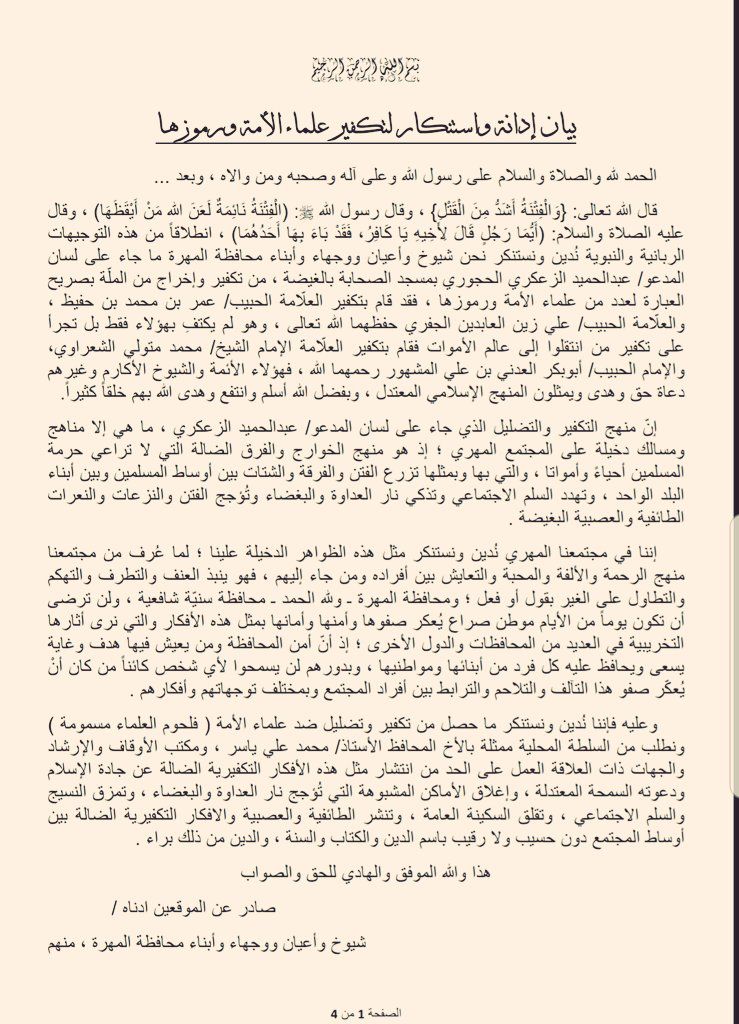 بسم الله الرحمن الرحيم
بيان إدانة واستنكار لتكفير علماء الأمة ورموزها
الحمد لله والصلاة والسلام على رسول الله وعلى آله وصحبه ومن والاه ، وبعد ...
قال الله تعالى: {وَالْفِتْنَةُ أَشَدُّ مِنَ الْقَتْلِ} ، وقال رسول الله ﷺ: (الْفِتْنَةُ نَائِمَةٌ لَعَنَ الله مَنْ أَيْقَظَهَا) ، وقال
عليه الصلاة والسلام: (أَيُّمَا رَجُلٍ قَالَ لِأَخِيهِ يَا كَافِرُ، فَقَدْ بَاءَ بِهَا أَحَدُهُمَا) ، انطلاقاً من هذه التوجيهات
الربانية والنبوية نُدين ونستنكر نحن شيوخ وأعيان ووجهاء وأبناء محافظة المهرة ما جاء على لسان
المدعو/ عبدالحميد الزعكري الحجوري بمسجد الصحابة بالغيضة ، من تكفير وإخراج من الملّة بصريح
العبارة لعدد من علماء الأمة ورموزها ، فقد قام بتكفير العلّامة الحبيب/ عمر بن محمد بن حفيظ ،
والعلّامة الحبيب/ علي زين العابدين الجفري حفظهما الله تعالى ، وهو لم يكتفِ بهؤلاء فقط بل تجرأ
على تكفير من انتقلوا إلى عالم الأموات فقام بتكفير العلامة الإمام الشيخ/ محمد متولي الشعراوي،
والإمام الحبيب/ أبوبكر العدني بن علي المشهور رحمهما الله ، فهؤلاء الأئمة والشيوخ الأكارم وغيرهم
دعاة حق وهدى ويمثلون المنهج الإسلامي المعتدل ، وبفضل الله أسلم وانتفع وهدى الله بهم خلقاً كثيراً.
إنّ منهج التكفير والتضليل الذي جاء على لسان المدعو/ عبدالحميد الزعكري ، ما هي إلا مناهج
ومسالك دخيلة على المجتمع المهري ؛ إذ هو منهج الخوارج والفرق الضالة التي لا تراعي حرمة
المسلمين أحياءً وأمواتا ، والتي بها وبمثلها تزرع الفتن والفرقة والشتات بين أوساط المسلمين وبين أبناء
البلد الواحد ، وتهدد السلم الاجتماعي وتذكي نار العداوة والبغضاء وتُؤجج الفتن والنزعات والنعرات
الطائفية والعصبية البغيضة .
إننا في مجتمعنا المهري نُدين ونستنكر مثل هذه الظواهر الدخيلة علينا ؛ لما عُرف من مجتمعنا
منهج الرحمة والألفة والمحبة والتعايش بين أفراده ومن جاء إليهم ، فهو ينبذ العنف والتطرف والتهكم
والتطاول على الغير بقول أو فعل ؛ ومحافظة المهرة ـ ولله الحمد ـ محافظة سنيّة شافعية ، ولن ترضى
أن تكون يوماً من الأيام موطن صراع يُعكر صفوها وأمنها وأمانها بمثل هذه الأفكار والتي نرى أثارها
التخريبية في العديد من المحافظات والدول الأخرى ؛ إذ أنّ أمن المحافظة ومن يعيش فيها هدف وغاية
يسعى ويحافظ عليه كل فرد من أبنائها ومواطنيها ، وبدورهم لن يسمحوا لأي شخص كائناً من كان أنْ
يُعكّر صفو هذا التآلف والتلاحم والترابط بين أفراد المجتمع وبمختلف توجهاتهم وأفكارهم .
وعليه فإننا نُدين ونستنكر ما حصل من تكفير وتضليل ضد علماء الأمة ( فلحوم العلماء مسمومة )
ونطلب من السلطة المحلية ممثلة بالأخ المحافظ الأستاذ/ محمد علي ياسر ، ومكتب الأوقاف والإرشاد
والجهات ذات العلاقة العمل على الحد من انتشار مثل هذه الأفكار التكفيرية الضالة عن جادة الإسلام
ودعوته السمحة المعتدلة ، وإغلاق الأماكن المشبوهة التي تُؤجج نار العداوة والبغضاء ، وتمزق النسيج
والسلم الاجتماعي ، وتقلق السكينة العامة ، وتنشر الطائفية والعصبية والافكار التكفيرية الضالة بين
أوساط المجتمع دون حسيب ولا رقيب باسم الدين والكتاب والسنة ، والدين من ذلك براء .
هذا والله الموفق والهادي للحق والصواب
صادر عن الموقعين ادناه /
شيوخ وأعيان ووجهاء وأبناء محافظة المهرة ، منهم
الصفحة 1 من 4